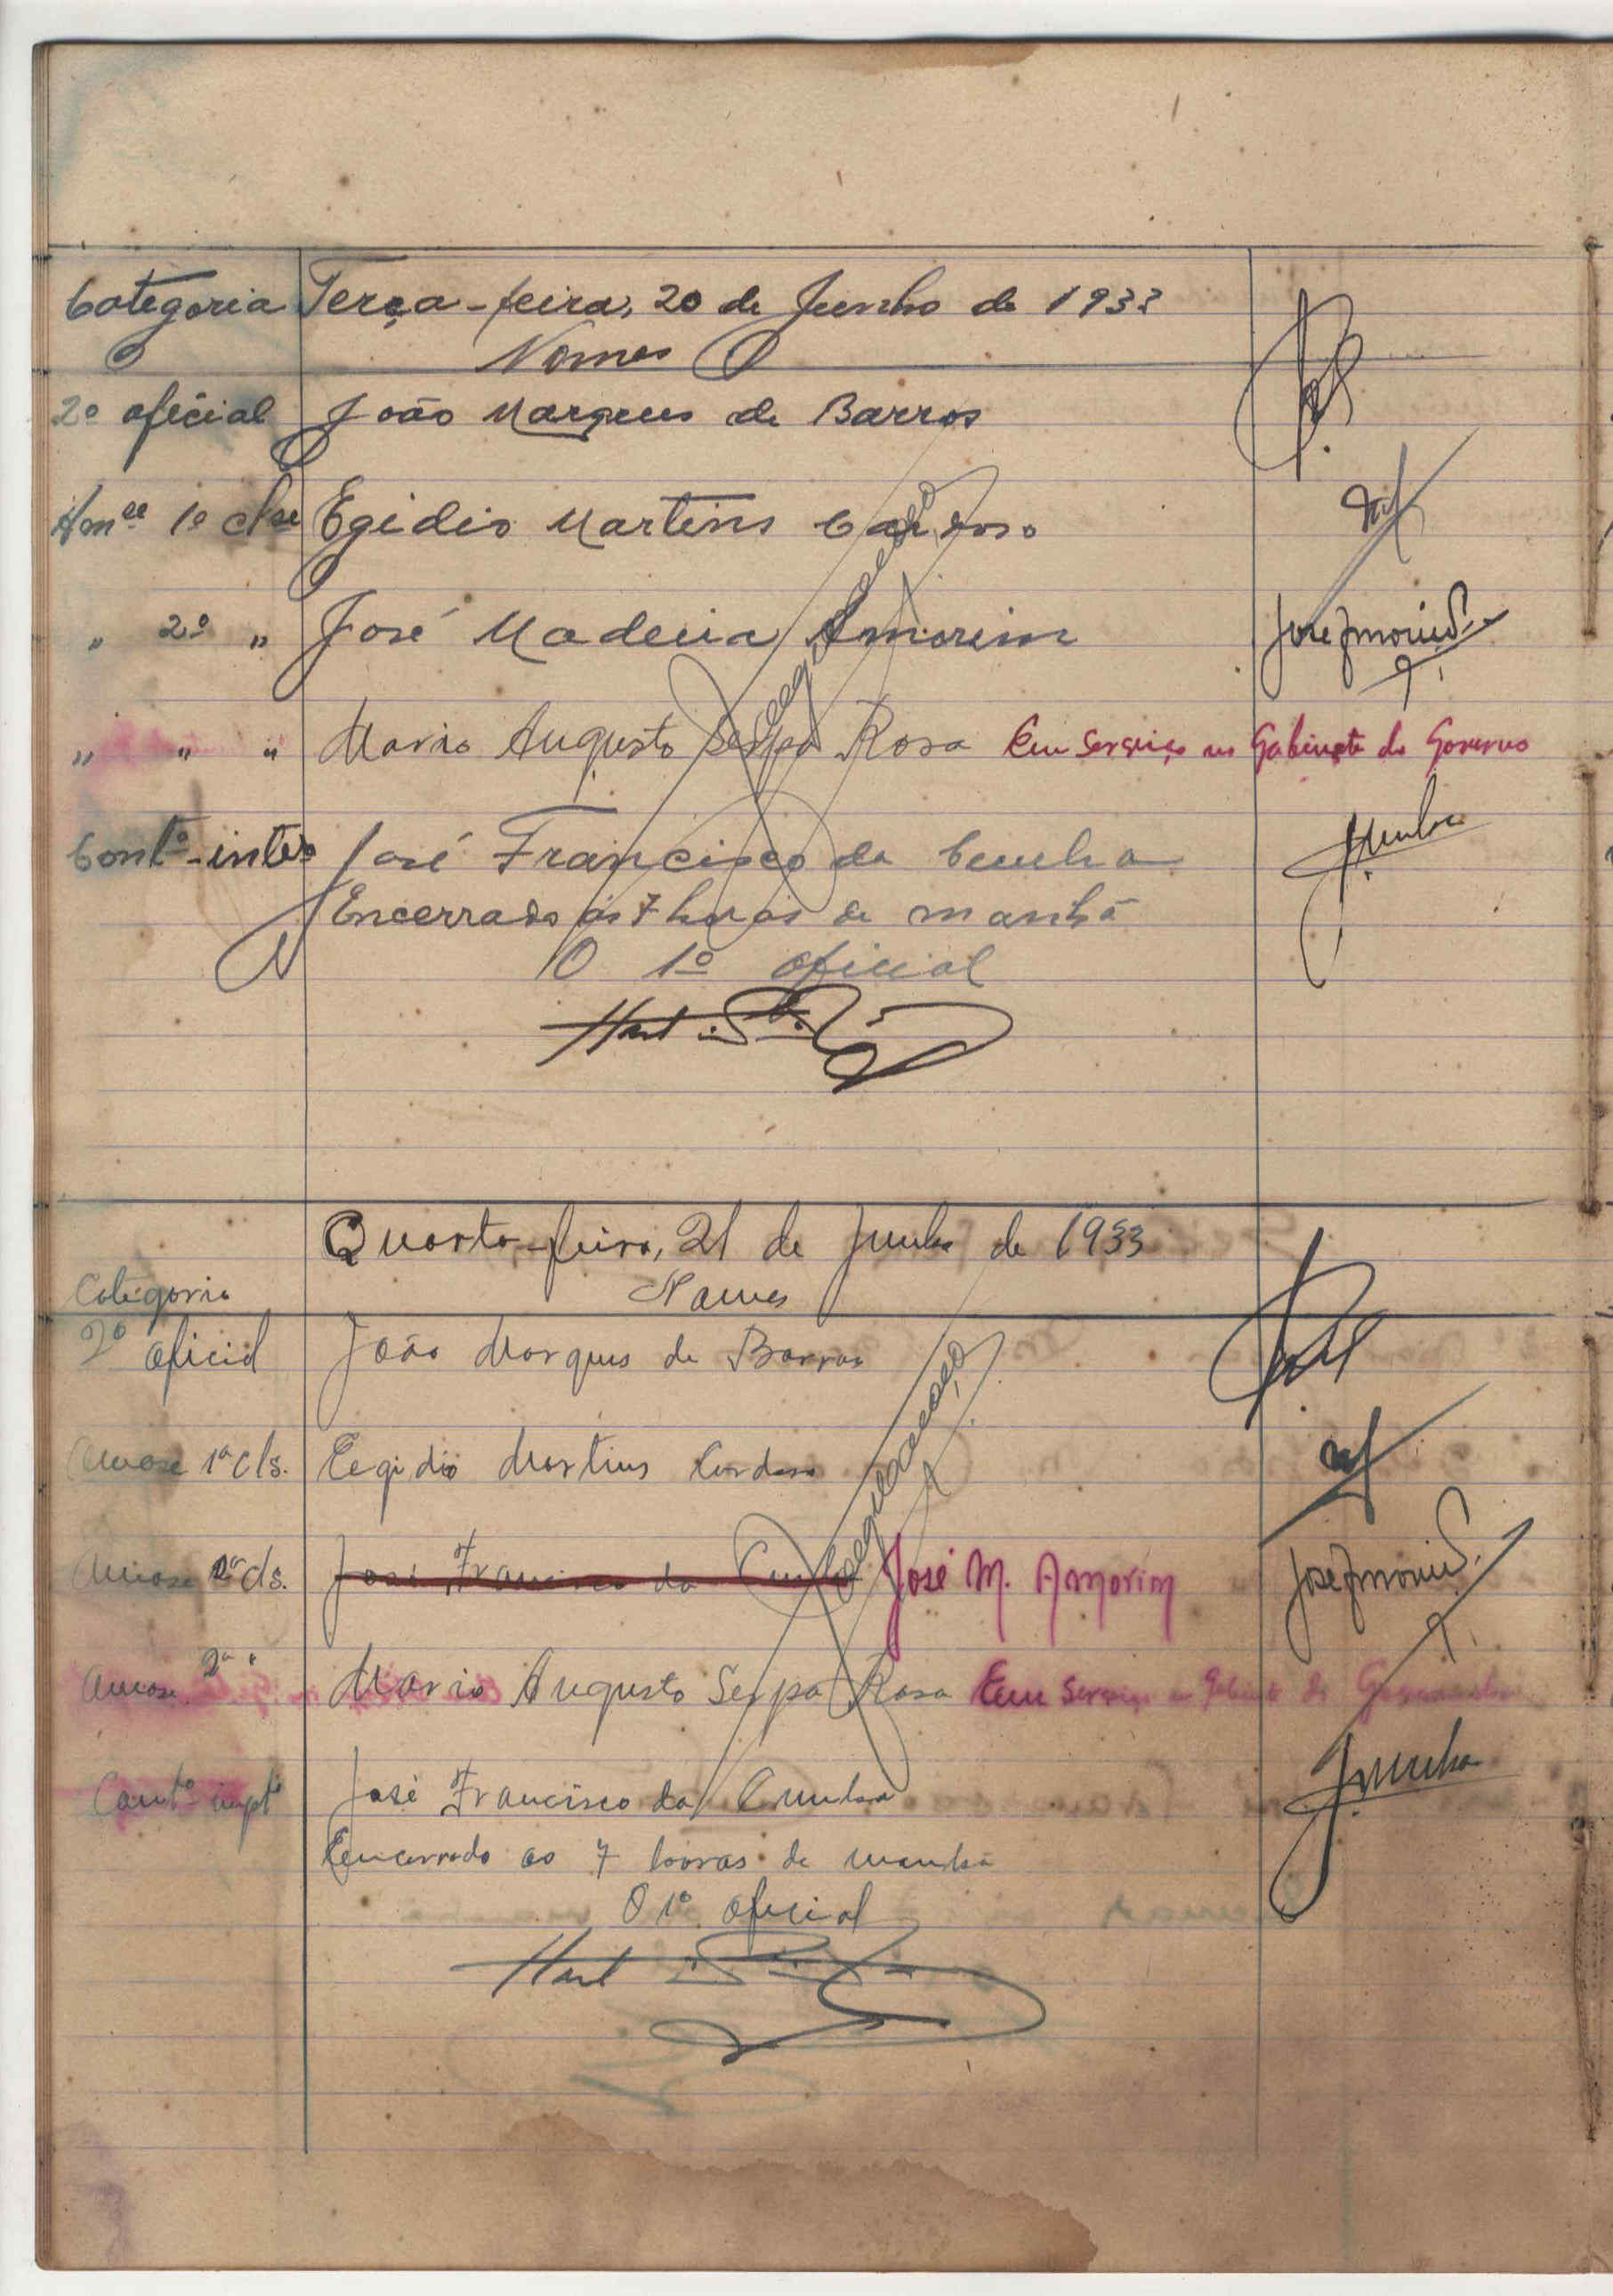 Categoria Terça-feira, 20 de Junho de 1933
Nomes
2º oficial João Marques de Barros
1ª Egidio Martins Cardoso
" 2ª " José Madeira Amorim José Amorim
" " " Mario Augusto Serpa Rosa Em serviço no Gabinete do Governo
Contº-intº José Francisco da Cunha JCunha
Encerrado ás 7 horas da manhã
O 1º oficial
Quarta-feira, 21 de Junho de 1933
Categoria Nomes
2º oficial João Marques de Barros
1ª cls. Egidio Martins Cardoso
2ª cls. José Francisco da Cunha José M. Amorim José Amorim
2ª " Mario Augusto Serpa Rosa Em serviço
José Francisco da Cunha JCunha
Encerrado as 7 horas da manhã
O 1º oficial